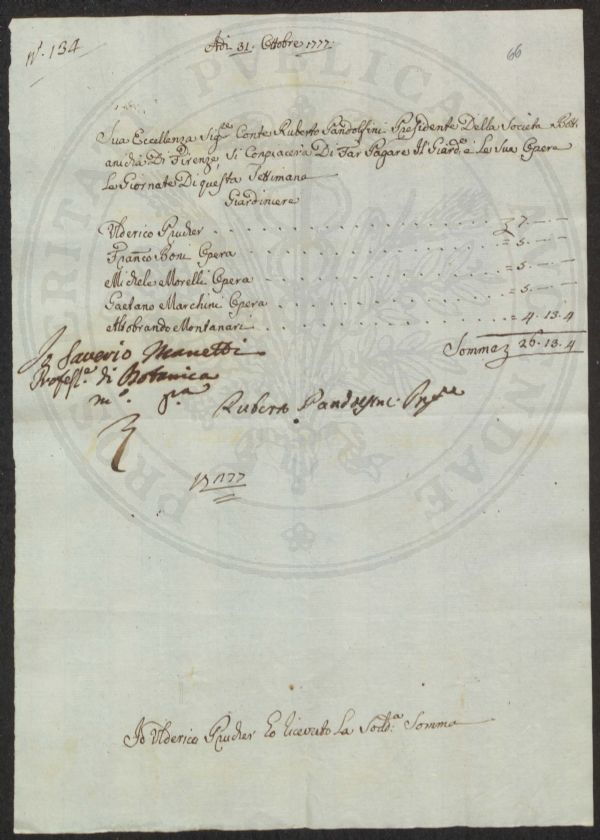 nº. 134
Adi 31. Ottobre 1777.
66
Sua Eccellenza Sigre. Conte Ruberto Pandolfini Presidente Della Societa Bott
anicha Di Firenze, Si Conpiacerà Di Far Pagare Il Giard.e e Le Sua Opera
Le Giornate Di questa Settimana
Giardiniere
Ulderico Prucher . . . . . . . . . . . . . . . 7. — —
Franco Boni Opera . . . . . . . . . . . . . = 5. — —
Michele Morelli Opera . . . . . . . . . . . = 5. — —
Gaetano Marchini Opera . . . . . . . . . . = 5. — —
Aldobrando Montanari . . . . . . . . . . . = 4. 13. 4
Somma 26. 13. 4
Io Saverio Manetti
Profess.e di Botanica
mº. pª
Ruberto Pandolfini Preste
1777
Io Ulderico Prucher Ho Ricevuto La Sodd.a Somma
PROSPERITATI PUBLICAE AUGENDAE